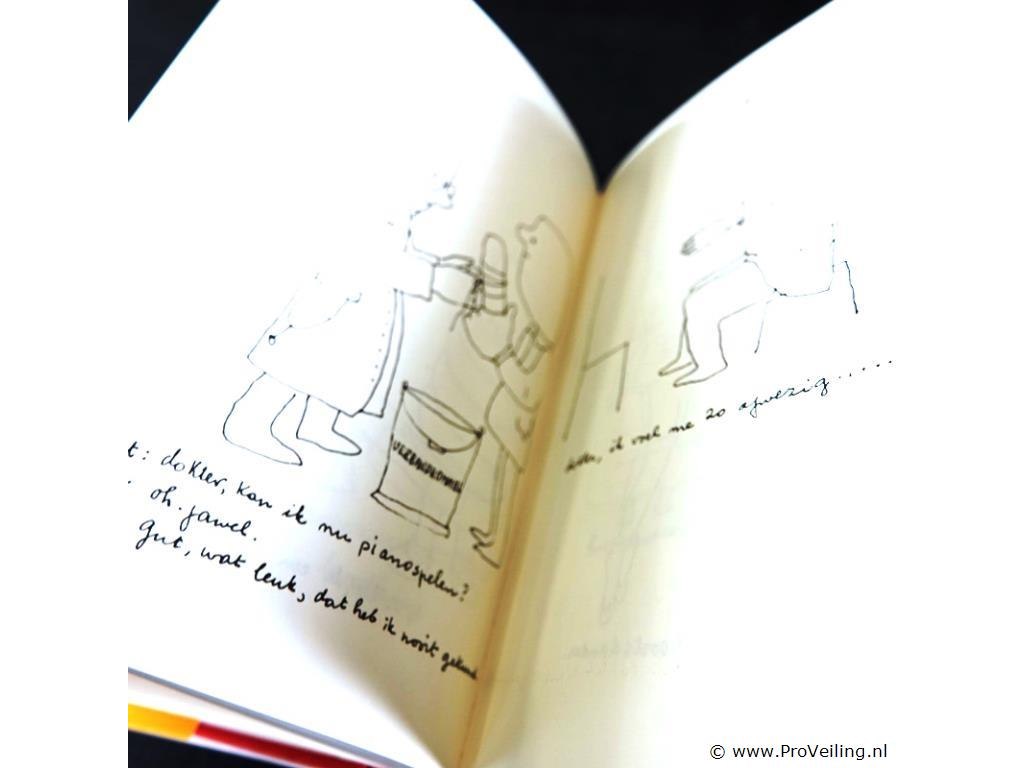 t: dokter, kan ik nu pianospelen?
. oh. jawel.
gut, wat leuk, dat heb ik nooit gekund
VERBANDTROMMEL
ik voel me zo afwezig.....
© www.ProVeiling.nl